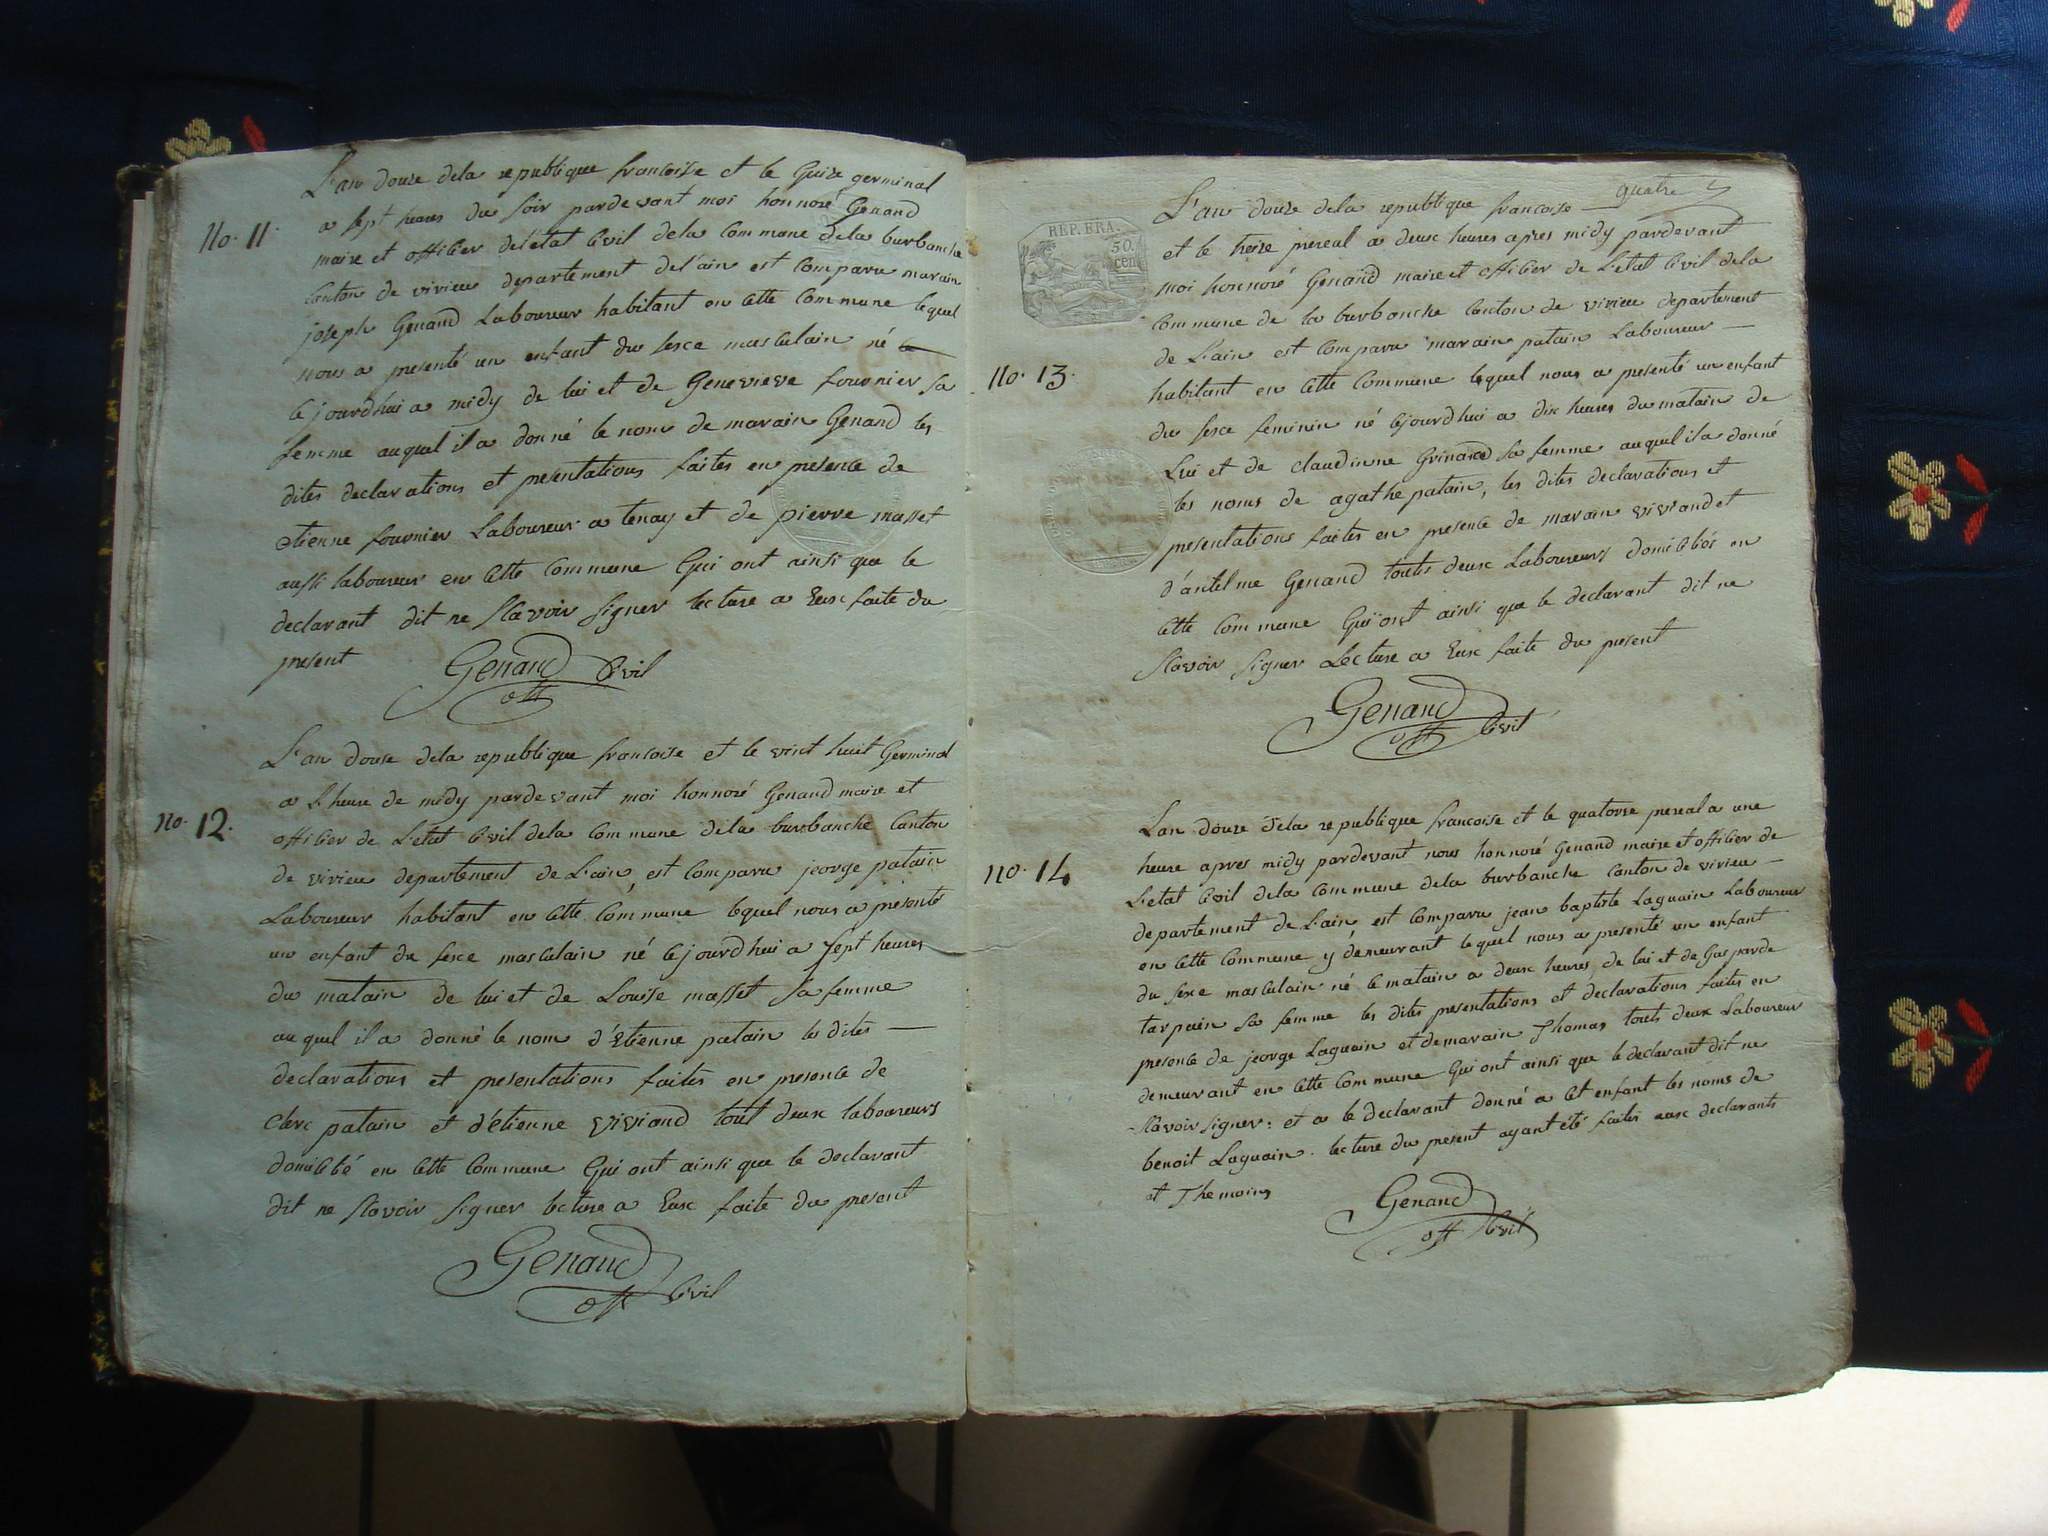 No. 11.
L'an douze dela republique francoise et le Quize germinal
a sept heures du soir pardevant moi honnoré Genand
maire et officier deletat Civil dela Commune dela burbanche
Canton de virieu departement del'ain est Comparu marain
joseph Genand Laboureur habitant en Cette Commune lequel
nous a presenté un enfant du sexe masculain né
Cejourdhui a midy de lui et de Genevieve fournier sa
femme auquel il a donné le nom de marain Genand les
dites declarations et presentations faites en presence de
etienne fournier Laboureur a tenay et de pierre masset
aussi laboureur en Cette Commune Qui ont ainsi que le
declarant dit ne Scavoir signer lecture a Eux faite du
present
Genand
off Civil
no. 12.
L'an douze dela republique francoise et le vint huit Germinal
a L'heure de midy pardevant moi honnoré Genand maire et
officier de L'etat Civil dela Commune dela burbanche Canton
de virieu departement de L'ain, est Comparu jeorge patain
Laboureur habitant en Cette Commune lequel nous a presenté
un enfant du sexe masculain né Cejourdhui a sept heures
du matain de lui et de Louise masset sa femme
auquel il a donné le nom d'Etienne patain les dites
declarations et presentations faites en presence de
Clerc patain et d'étienne viviand tout deux laboureurs
domicilié en Cette Commune Qui ont ainsi que le declarant
dit ne scavoir signer lecture a Eux faite du present
Genand
off Civil
quatre
REP. FRA.
50. cen
No. 13.
L'an douze dela republique francoise
et le treize prereal a deux heures apres midy pardevant
moi honnoré Genand maire et officier de L'etat Civil dela
Commune de la burbanche Canton de virieu departement
de L'ain est Comparu marain patain Laboureur
habitant en Cette Commune lequel nous a presenté un enfant
du sexe feminin né Cejourdhui a dix heures du matain de
Lui et de claudinne Grinand sa femme auquel il a donné
les noms de agathe patain, les dites declarations et
presentations faites en presence de marain viviand et
d'antelme Genand touts deux Laboureurs domiciliés en
Cette Commune Qui ont ainsi que le declarant dit ne
Scavoir signer Lecture a Eux faite du present
Genand
off Civil
no. 14
Lan douze dela republique francoise et le quatorse prereal a une
heure apres midy pardevant nous honnoré Genand maire et officier de
L'etat Civil dela Commune dela burbanche Canton de virieu
departement de L'ain, est Comparu jean baptiste Laguain Laboureur
en Cette Commune y demeurant lequel nous a presenté un enfant
du sexe masculain né le matain a deux heures, de lui et de Gasparde
tarpain sa femme les dites presentations et declarations faites en
presence de jeorge Laguain et de marain Thomas touts deux Laboureur
demeurant en Cette Commune Qui ont ainsi que le declarant dit ne
Scavoir signer: et a le declarant donné a Cet enfant les noms de
benoit Laguain. lecture du present ayant été faites aux declarants
et Themoins
Genand
off Civil